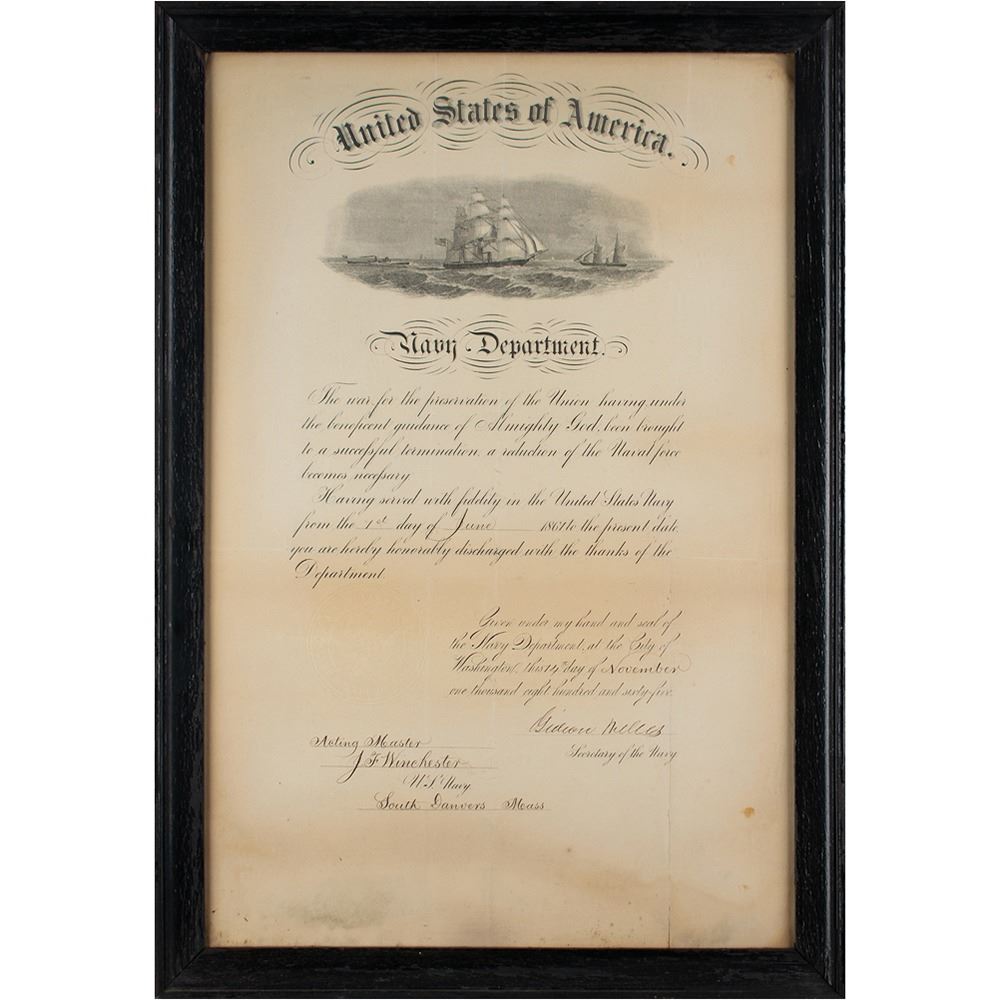 United States of America.
Navy Department.
The war for the preservation of the Union having, under
the beneficent guidance of Almighty God, been brought
to a successful termination, a reduction of the Naval force
becomes necessary
Having served with fidelity in the United States Navy
from the 1st day of June 1861 to the present date,
you are hereby honorably discharged with the thanks of the
Department.
Given under my hand and seal of
the Navy Department, at the City of
Washington, this 14th day of November
one thousand eight hundred and sixty-five.
Gideon Welles
Secretary of the Navy
Acting Master
J F Winchester
U.S. Navy
South Danvers Mass